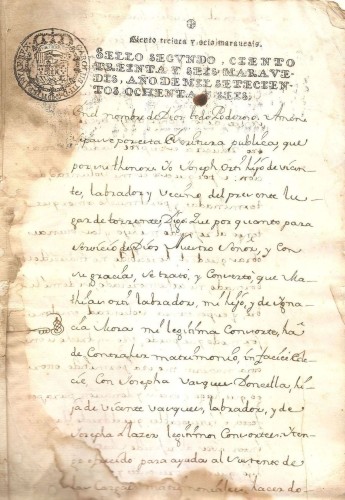 Ciento treinta y ocho maravedis.
SELLO SEGVNDO, CIENTO
TREINTA Y SEIS MARAVE-
DIS, AÑO DE MIL SETECIEN-
TOS OCHENTA Y SEIS.
En el nombre de Dios todo Poderoso, Amen:
Sepase por esta Escritura publica, que
por su thenor: Yo Joseph Ortí hijo de vicen-
te, labrador y vecino del presente lu-
gar de torrente; Digo: Que por quanto para
servicio de Dios Nuestro Señor, y con
su gracia, se trató, y convertó, que Ma-
thias ortí labrador, mi hijo, y de Igna-
cia Mora mi legitima consorte, ha-
de Contraher matrimonio, in facie Ecle-
cie Con Josepha Vazques Doncella, hi-
ja de vicente vasques, labrador, y de
Josepha legitimos Consortes: Y ten-
go ofrecido para ayuda al sustento de
hacer do-